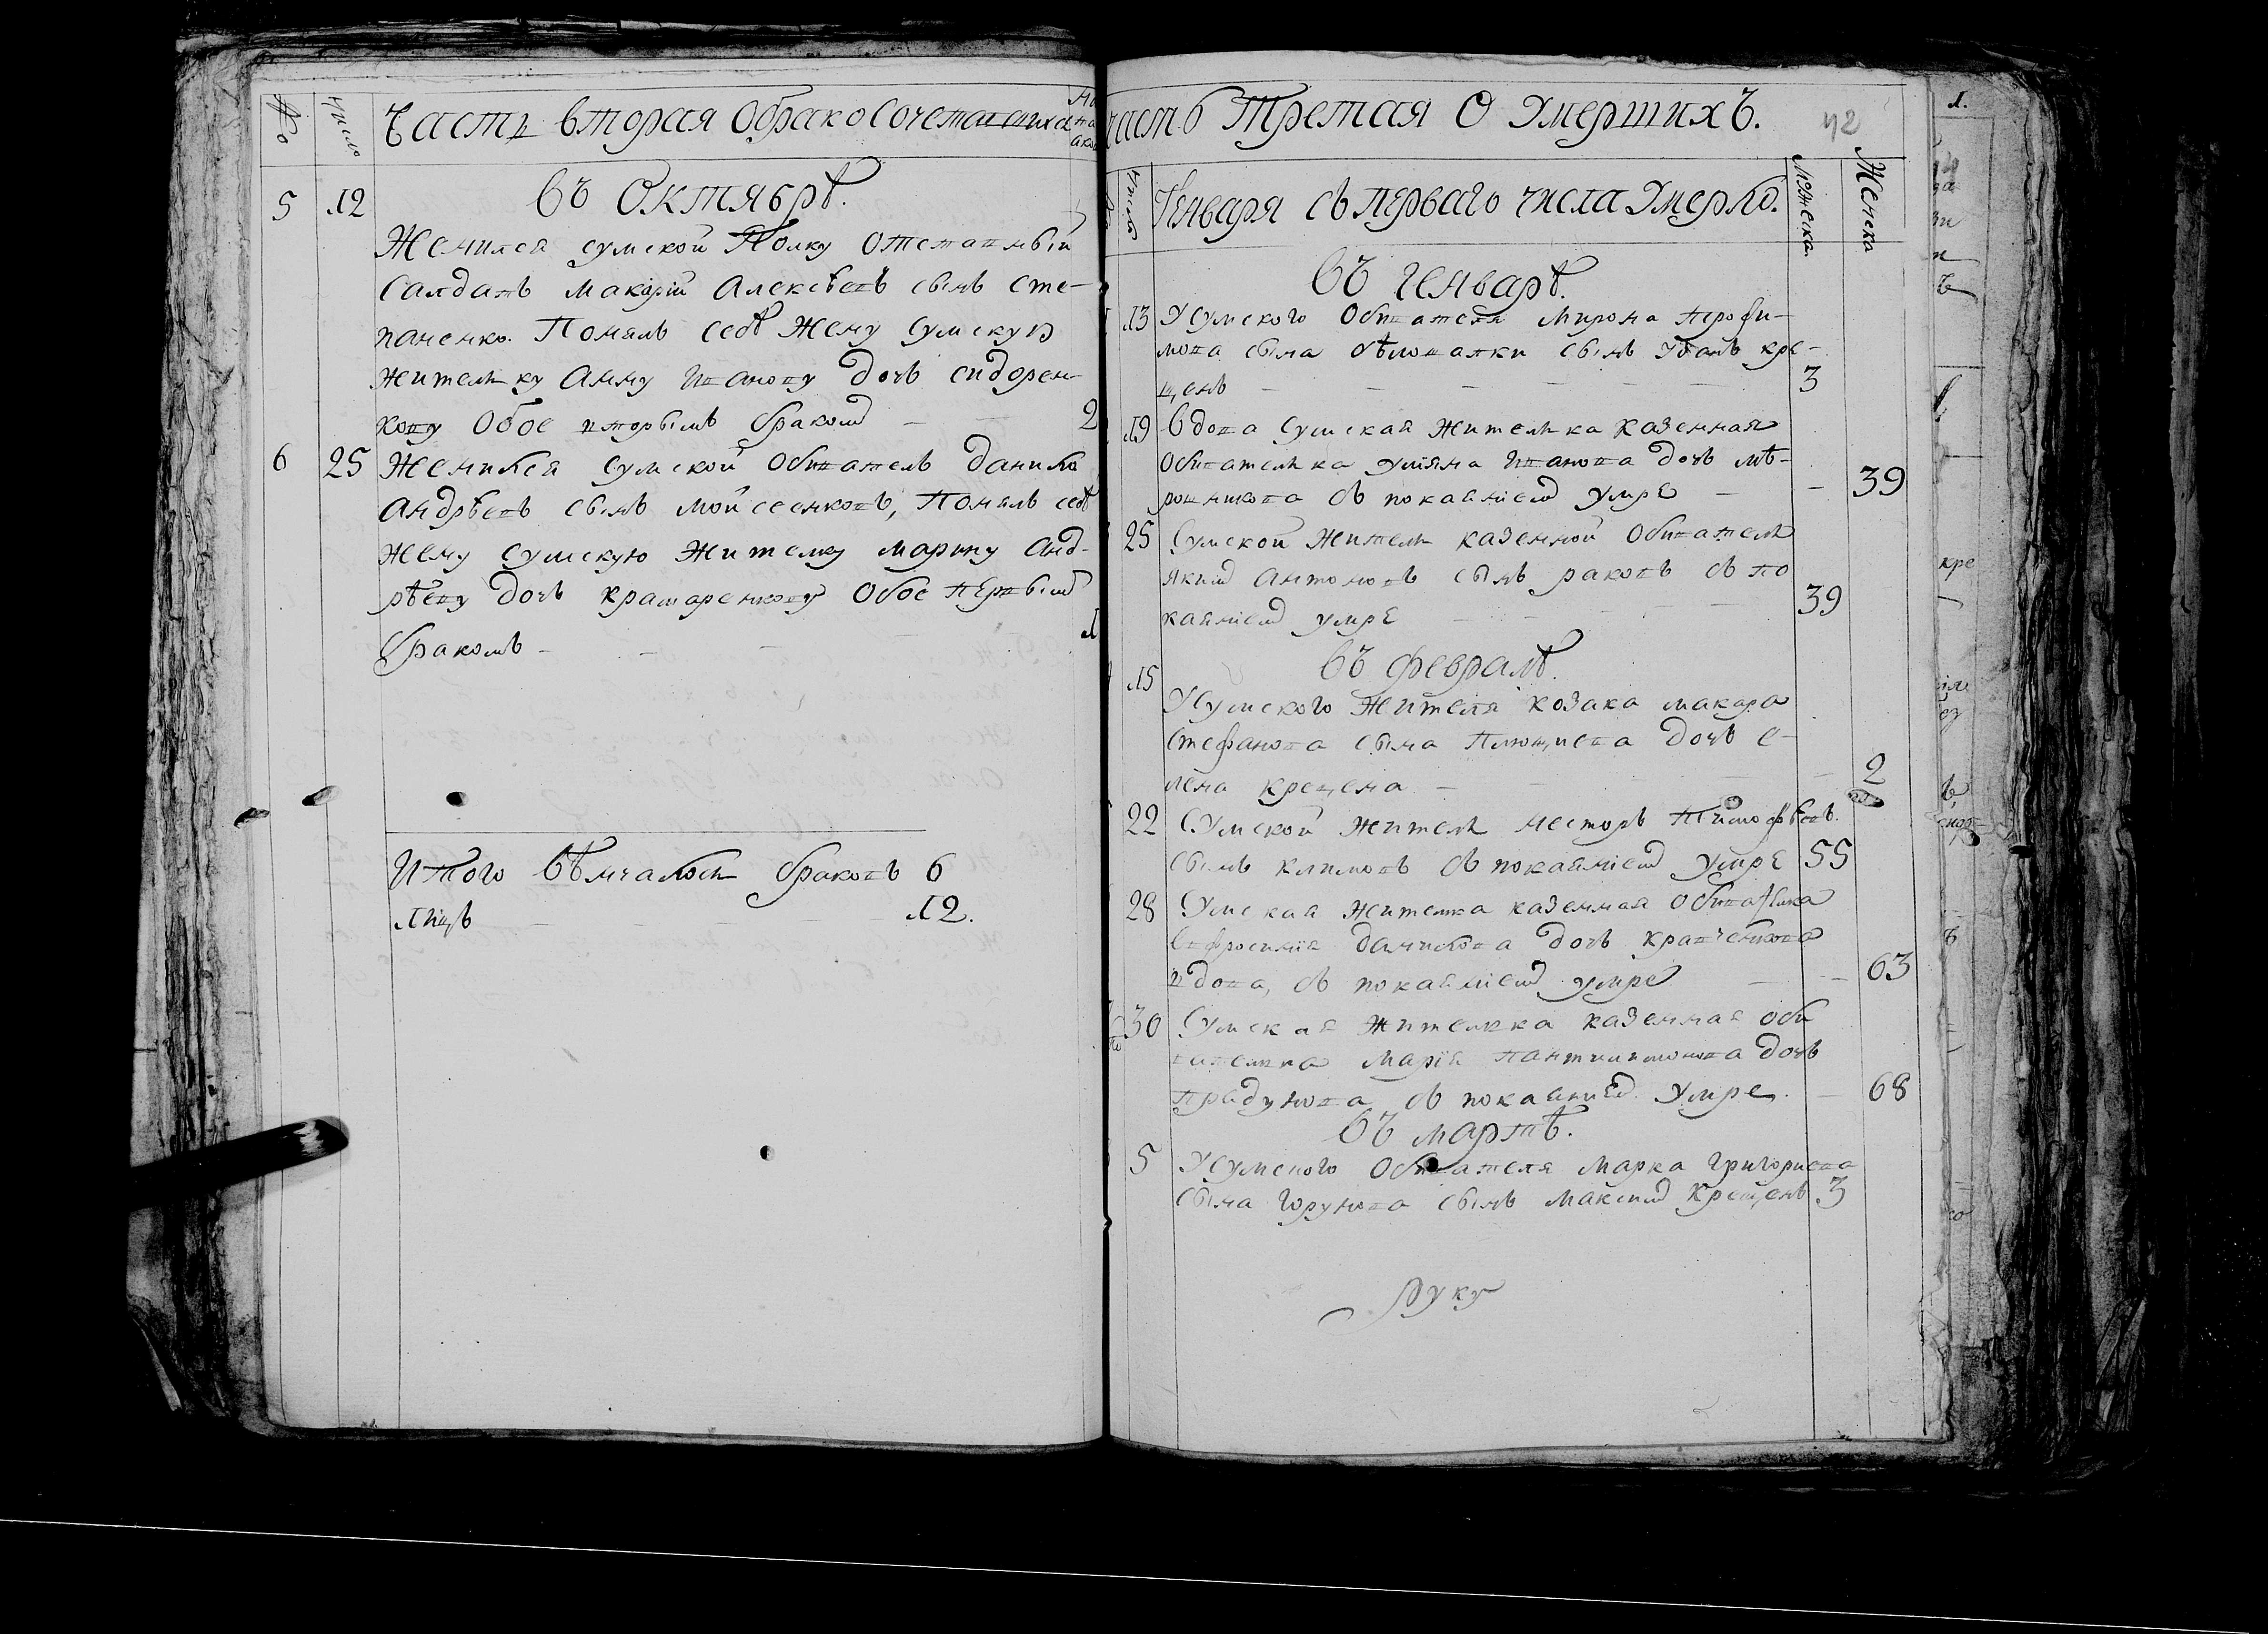 №
число
Часть вторая О бракосочетавшихся
5
12
Въ Октябрѣ.
Женился сумской Полку отставный
салдатъ макарій Алексѣевъ сынъ сте-
паненко. Понялъ себѣ жену сумскую
жителку Анну Иванову дочь сидорен-
кову Обое вторымъ бракомъ — 2
6
25
Женился сумской Обыватель данило
Андрѣевъ сынъ мойсеенковъ, Понялъ себѣ
жену сумскую жителку марину Анд-
рѣеву дочь крамаренкову Обое первымъ
бракомъ — 1
Итого вѣнчалось браковъ 6
лицъ — 12.
часть Третая О Умершихъ.
42
число
Генваря съ перваго числа Умерло.
мужеска
Женска
Въ Генварѣ.
13 У Сумского Обивателя мирона
сына сынъ кре-
щенъ — 3
19 Вдова Сумская жителка казенная
Обивателка Улияна Иванова дочь
съ покаяніемъ умре — 39
25 Сумской житель казенной Обиватель
яким Антоновъ сынъ раковъ съ по
каяніемъ умре — 39
Въ Февралѣ.
15
У Сумского жителя козака макара
Стефанова сына дочь е-
лена крещена — 2
22 Сумской житель несторъ Тимофѣевъ
сынъ климовъ съ покаяніемъ умре 55
28 Сумская жителка казенная Обивателка
Евфросинія данилова дочь кравченкова
вдова, съ покаяніемъ умре — 63
30 Сумская жителка казенная оби
вателка Марія Пантилимонова дочь
съ покаяніемъ умре — 68
Въ мартѣ.
5 У Сумского Обивателя марка григориева
сына горунова сынъ максим крещенъ 3
руку